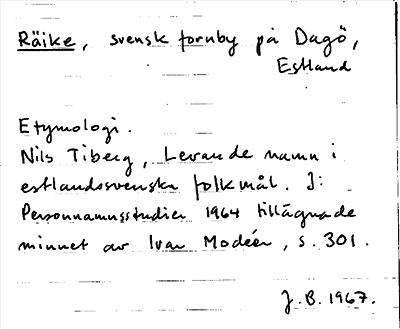 Räike, svensk fornby på Dagö,
Estland
Etymologi.
Nils Tiberg, Levande namn i
estlandssvenska folkmål. I:
Personnamnsstudier 1964 tillägnade
minnet av Ivar Modéer, s. 301.
J.B. 1967.